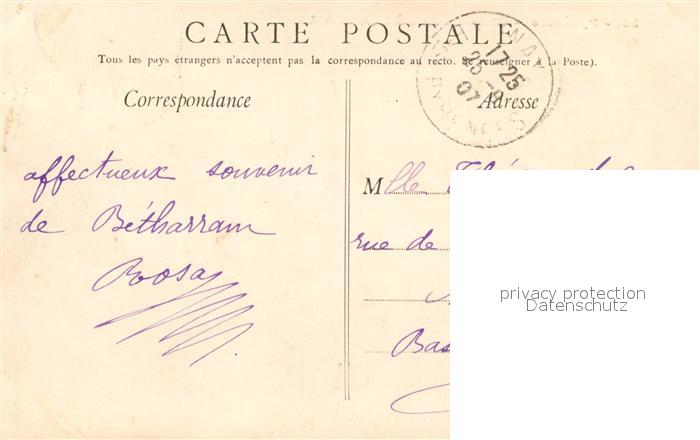 CARTE POSTALE
Tous les pays étrangers n'acceptent pas la correspondance au recto. Se renseigner à la Poste).
Correspondance
Adresse
NAY
17-25
25-9
07
affectueux souvenir
de Bétharram
Roosa
Mlle
rue de
Bas
privacy protection
Datenschutz